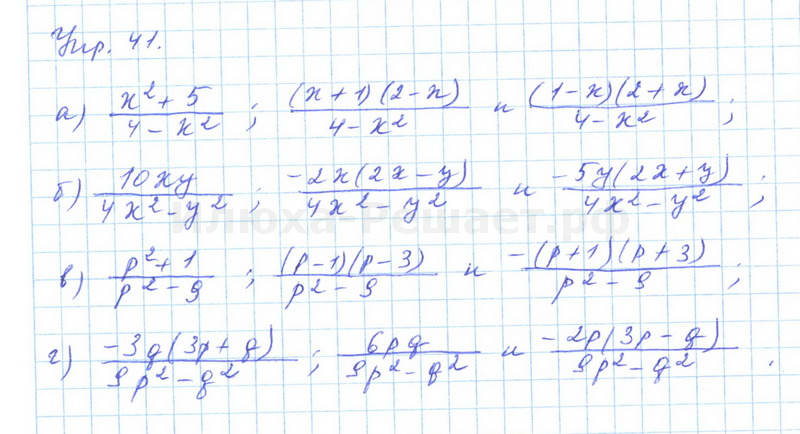 Упр. 41.
а) \frac{x^2+5}{4-x^2} ; \frac{(x+1)(2-x)}{4-x^2} и \frac{(1-x)(2+x)}{4-x^2} ;
б) \frac{10xy}{4x^2-y^2} ; \frac{-2x(2x-y)}{4x^2-y^2} и \frac{-5y(2x+y)}{4x^2-y^2} ;
илюха-Решает.рф
в) \frac{p^2+1}{p^2-9} ; \frac{(p-1)(p-3)}{p^2-9} и \frac{-(p+1)(p+3)}{p^2-9} ;
г) \frac{-3q(3p+q)}{9p^2-q^2} ; \frac{6pq}{9p^2-q^2} и \frac{-2p(3p-q)}{9p^2-q^2} .